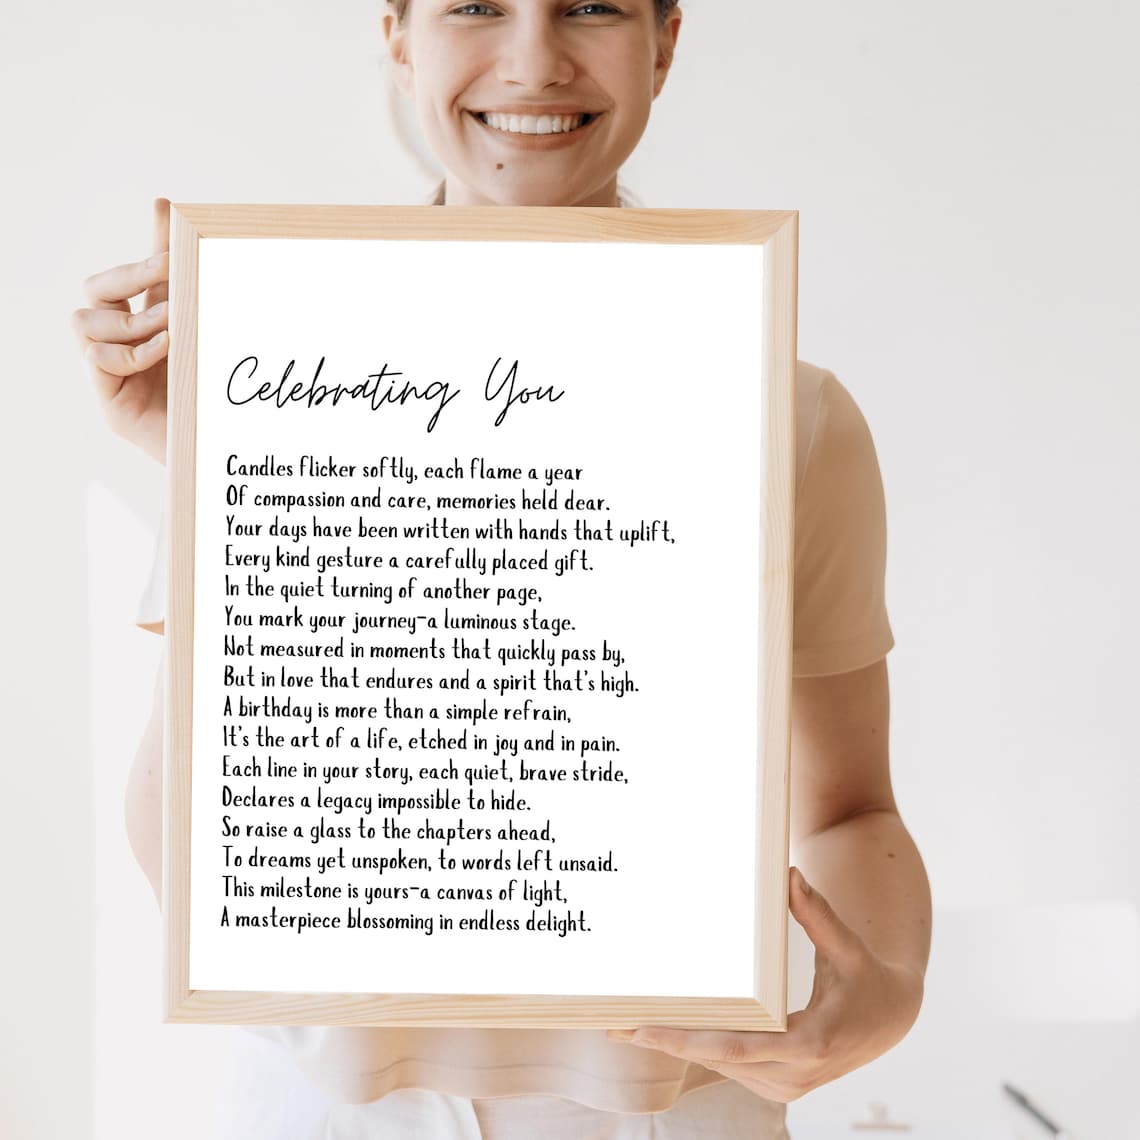 Celebrating You
Candles flicker softly, each flame a year
Of compassion and care, memories held dear.
Your days have been written with hands that uplift,
Every kind gesture a carefully placed gift.
In the quiet turning of another page,
You mark your journey-a luminous stage.
Not measured in moments that quickly pass by,
But in love that endures and a spirit that's high.
A birthday is more than a simple refrain,
It's the art of a life, etched in joy and in pain.
Each line in your story, each quiet, brave stride,
Declares a legacy impossible to hide.
So raise a glass to the chapters ahead,
To dreams yet unspoken, to words left unsaid.
This milestone is yours-a canvas of light,
A masterpiece blossoming in endless delight.